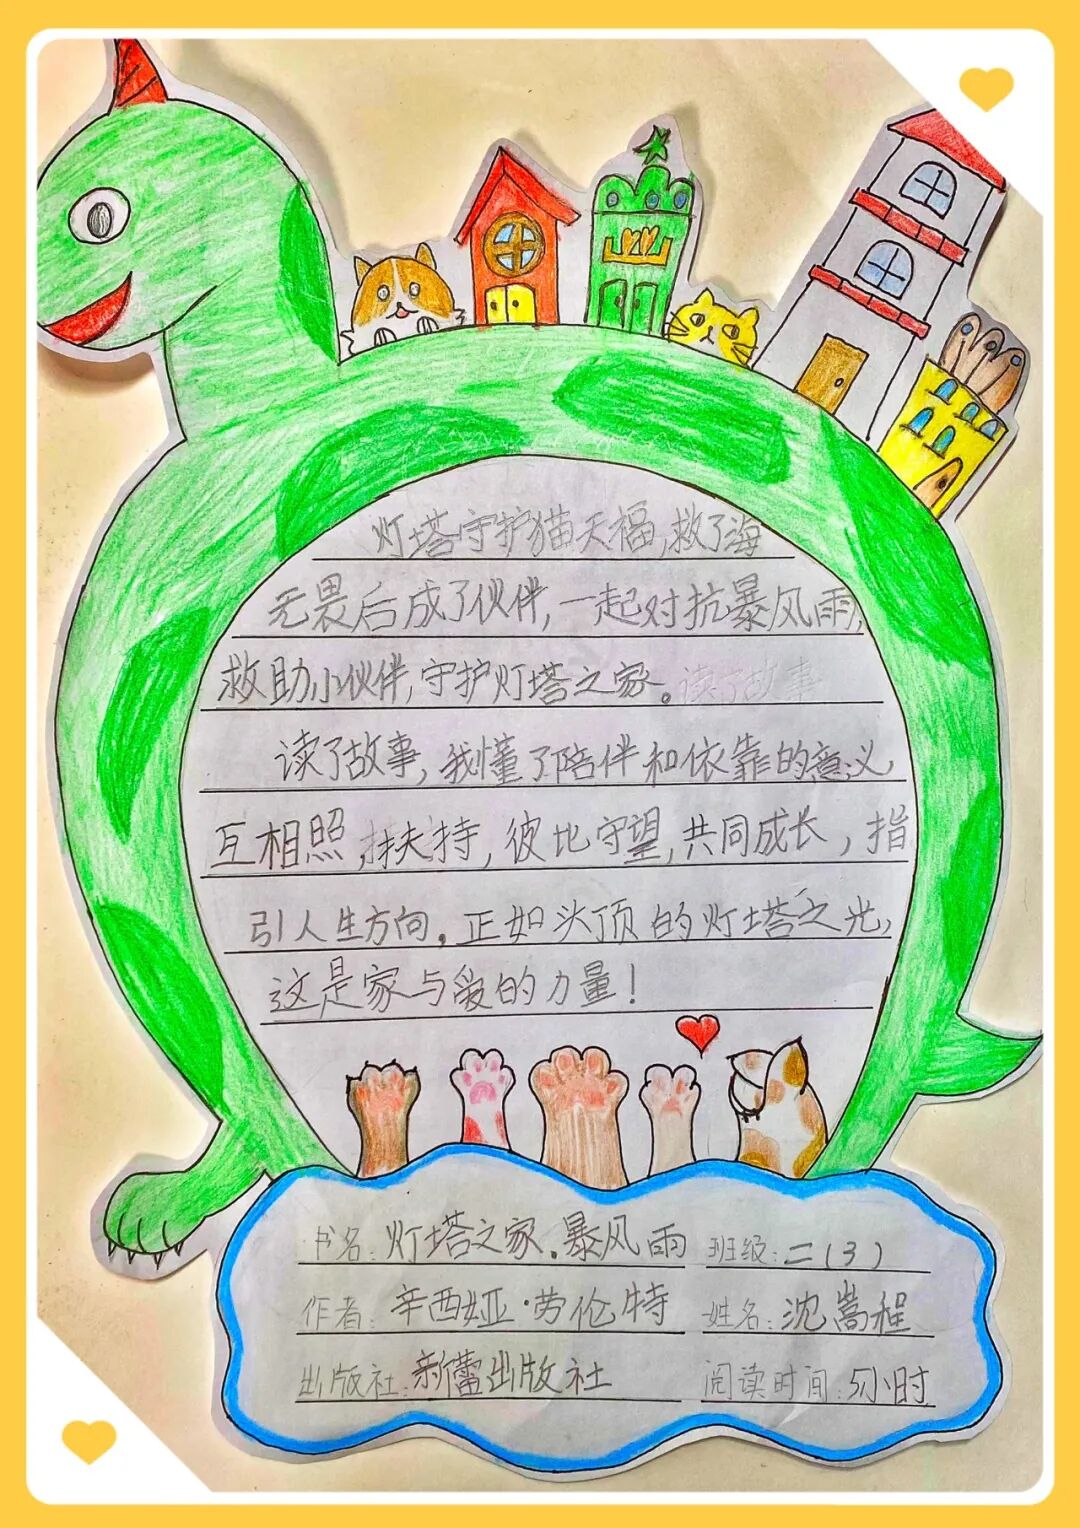 灯塔守护猫天福,救了海
无畏后成了伙伴,一起对抗暴风雨,
救助小伙伴,守护灯塔之家。读了故事
读了故事,我懂了陪伴和依靠的意义,
互相照,扶持,彼比守望,共同成长,指
引人生方向。正如头顶的灯塔之光,
这是家与爱的力量!
书名:灯塔之家.暴风雨 班级:二(3)
作者:辛西娅·劳伦特 姓名:沈嵩程
出版社:新蕾出版社 阅读时间:5小时